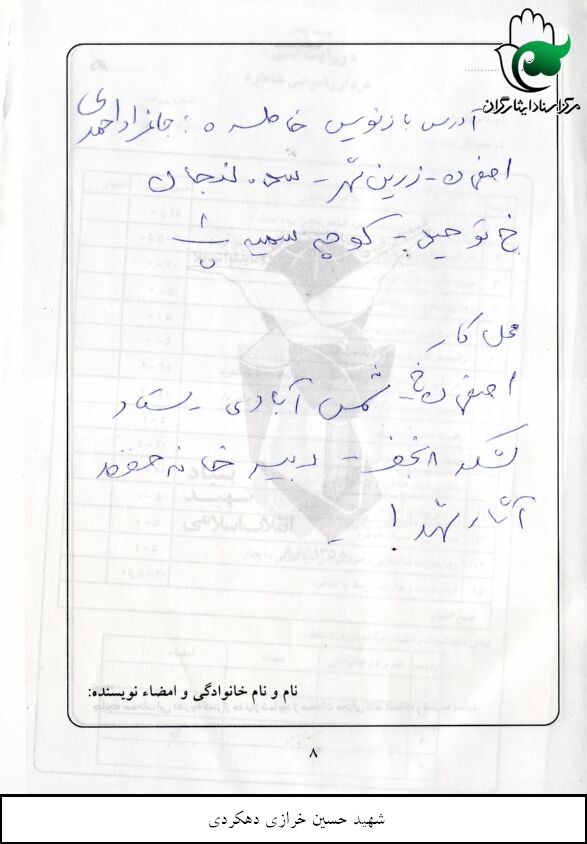 مرکز اسناد ایثارگران
آدرس بازنویس خاطره : جانمراد احمدی
اصفهان - زرین شهر - سده لنجان
خ توحید - کوچه سمیه
محل کار
اصفهان خ شمس آبادی - ستاد
لشکر ۸ نجف - دبیرخانه حفظ
آثار شهدا
نام و نام خانوادگی و امضاء نویسنده:
۸
شهید حسین خرازی دهکردی